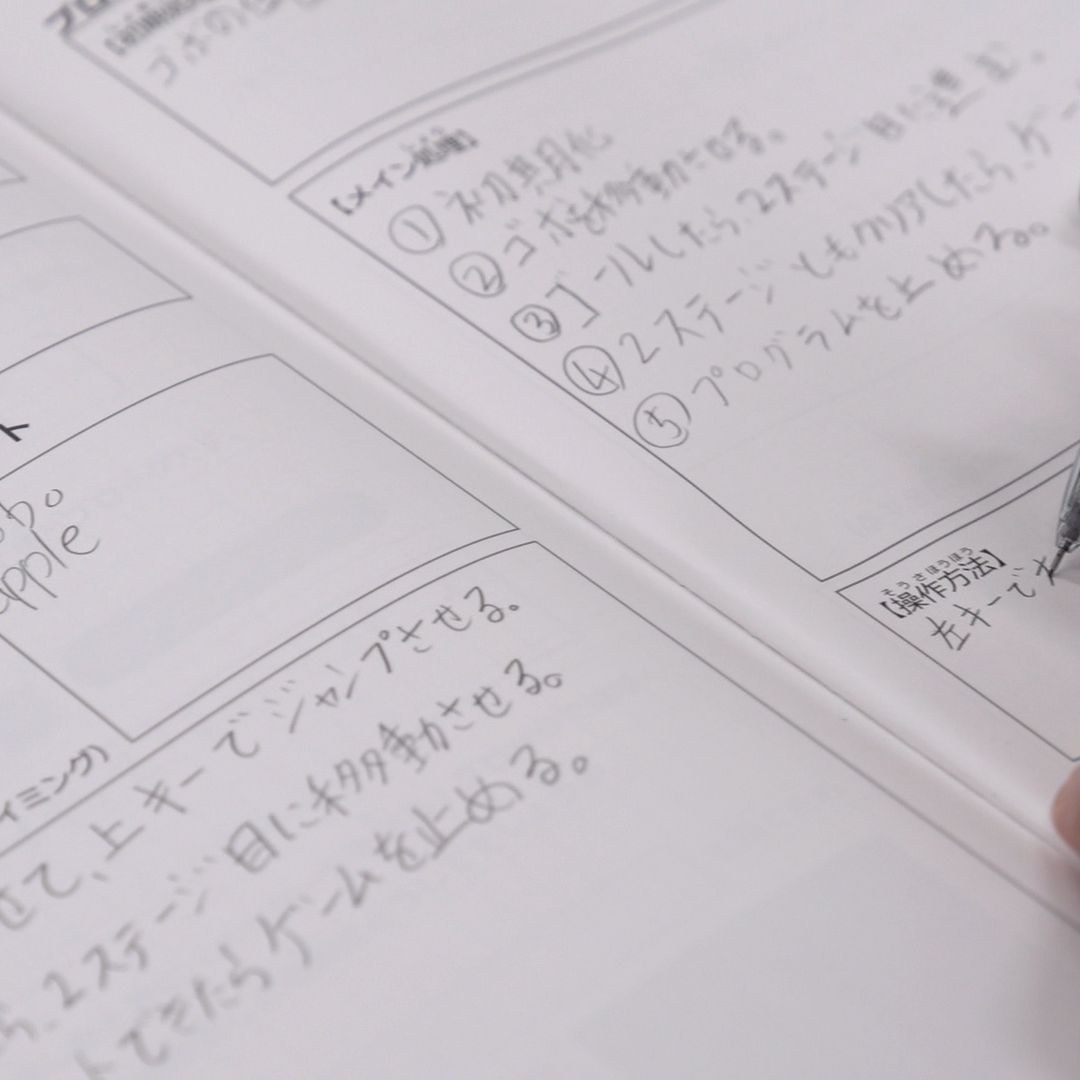 ト
apple
イミング）
せて、上キーでジャンプさせる。
ら、2ステージ目に移動させる。
トできたらゲームを止める。
【メイン処理】
①初期化
②ゴボを移動させる。
③ゴールしたら、2ステージ目に進む。
④2ステージともクリアしたら、ゲー
⑤プログラムを止める。
そうさほうほう
【操作方法】
左キーで